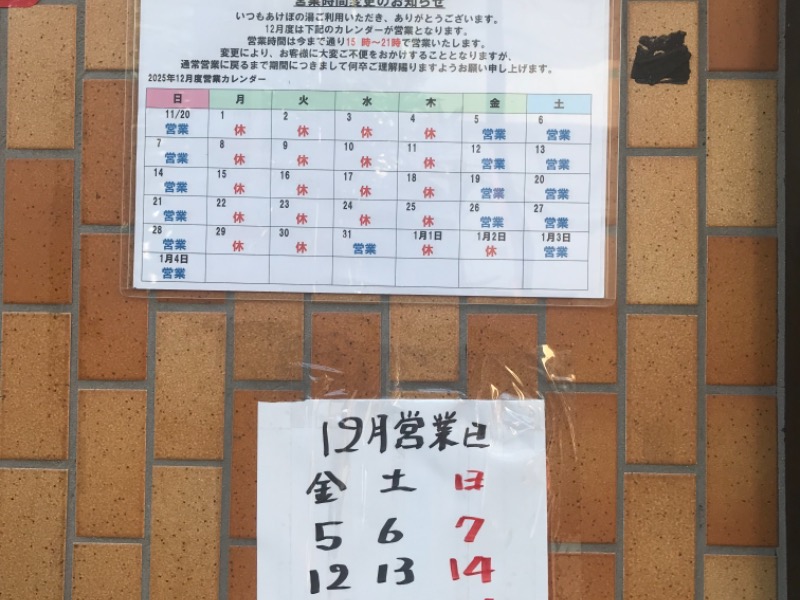 営業時間変更のお知らせ
いつもあけぼの湯ご利用いただき、ありがとうございます。
12月度は下記のカレンダーが営業となります。
営業時間は今まで通り15時～21時で営業いたします。
変更により、お客様に大変ご不便をおかけすることとなりますが、
通常営業に戻るまで期間につきまして何卒ご理解賜りますようお願い申し上げます。
2025年12月度営業カレンダー
日 月 火 水 木 金 土
11/20 1 2 3 4 5 6
営業 休 休 休 休 営業 営業
7 8 9 10 11 12 13
営業 休 休 休 休 営業 営業
14 15 16 17 18 19 20
営業 休 休 休 休 営業 営業
21 22 23 24 25 26 27
営業 休 休 休 休 営業 営業
28 29 30 31 1月1日 1月2日 1月3日
営業 休 休 営業 休 休 営業
1月4日
営業
12月営業日
金 土 日
5 6 7
12 13 14